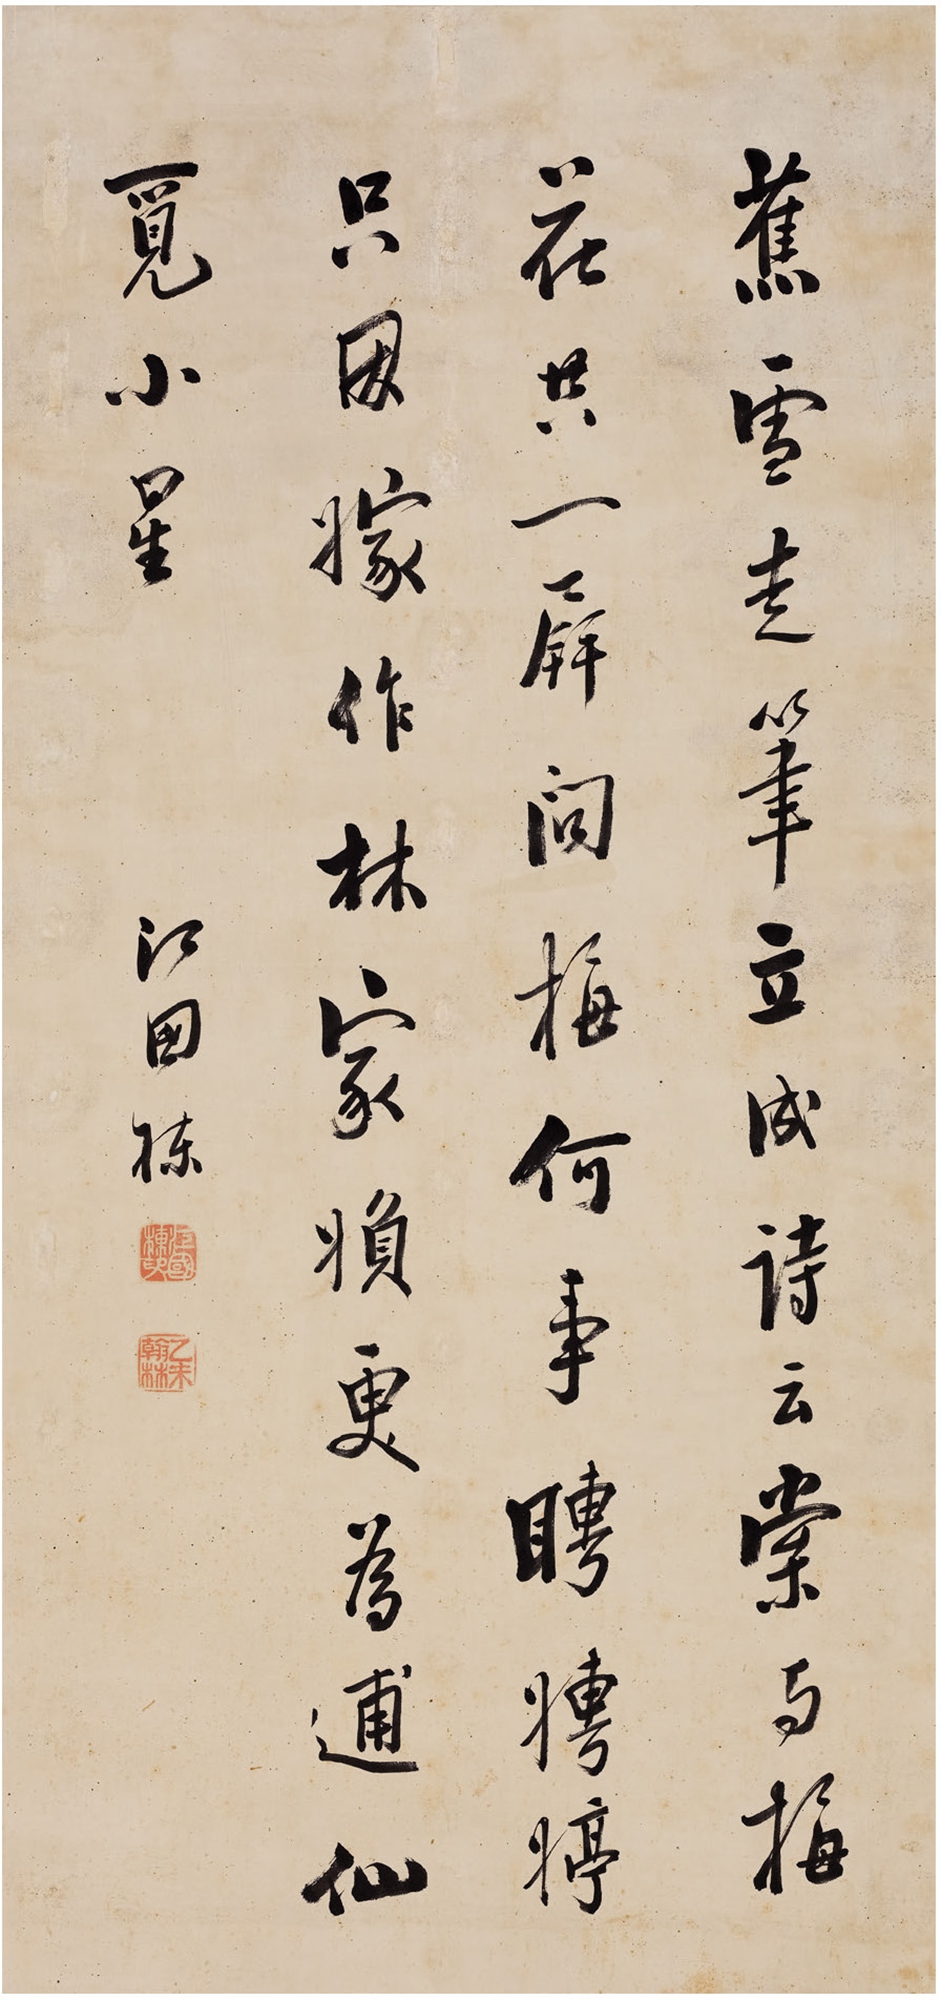 蕉雪走筆立成詩云棠与梅
花共一屏問梅何事聘娉婷
只因嫁作林家婦更為逋仙
覓小星
江国棟
江國棟印
乙未翰林